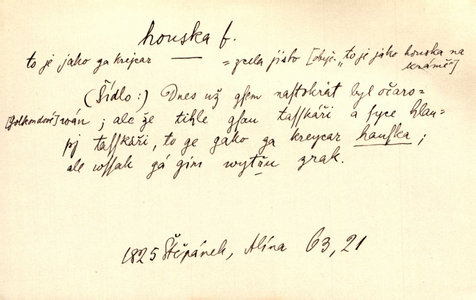 houska f.
to je jako ga kreycar —— = zcela jisto [obyč. "to je jako houska na
krámě"]
(Šídlo:) Dnes už gsem nastokrát byl očaro-
wán; ale že tihle gsau tasskáři a syce hlau-
pj tasskáři, to ge gako ga kreycar hauska;
ale wssak gá gim wytřu zrak.
1825 Štěpánek, Alina 63, 21